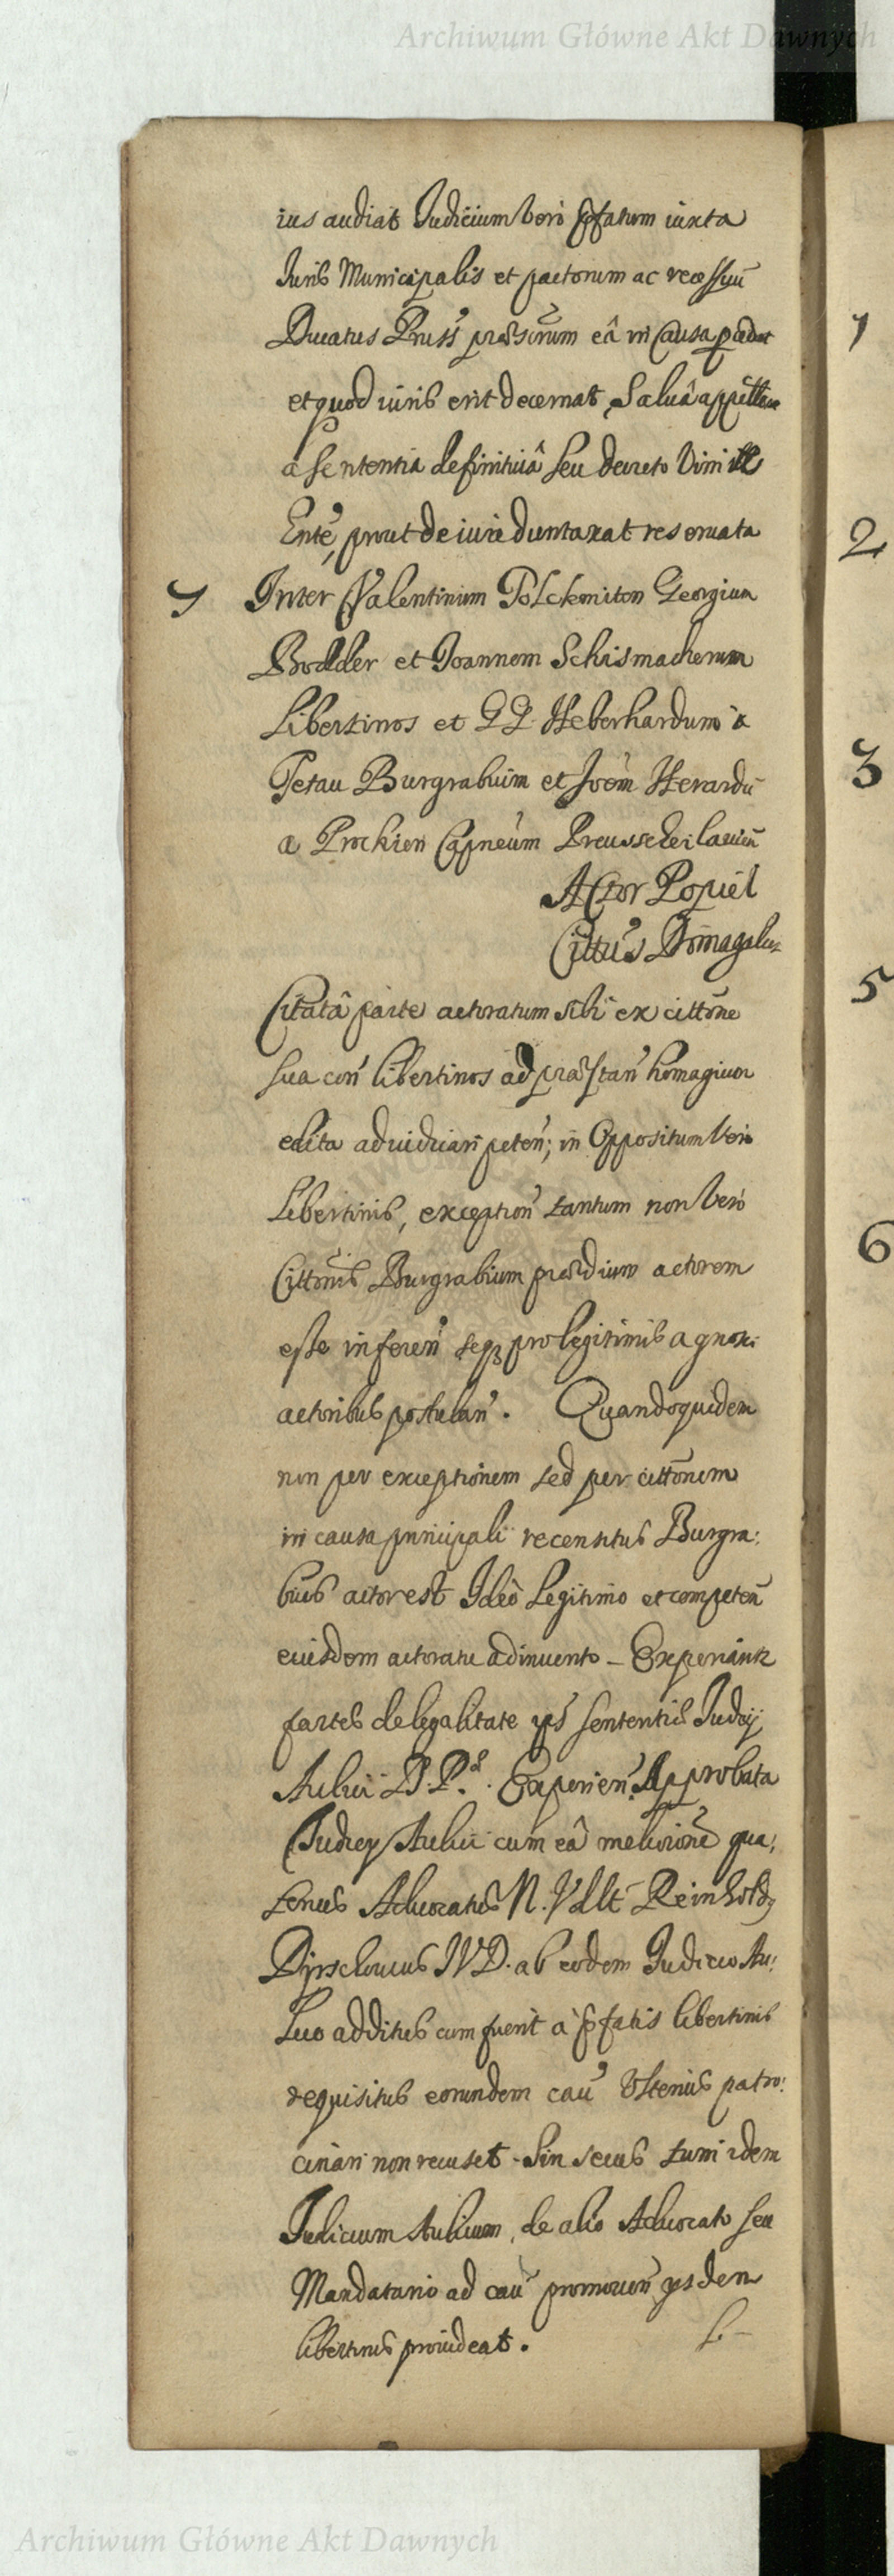 Archiwum Główne Akt Dawnych
ius audiat Judicium vero pfatum iuxta
Juris Municipalis et pactorum ac recessuū
Ducatus Pruss' præscrum eâ in Causa pcedat
et quod iuris erit decernat, Saluâ appellaone
a sententia definitiuâ seu decreto vim
Ente', prout de iure duntaxat reseruata
7 Inter Valentinum Polckeniten Georgium
Brodder et Joannem Schismacherum
Libertinos et GG Heberhardum à
Tetau Burgrabium et Joem Herardū
a Prockien Capneum Preusscheilauien
Actor Popiel
Cittus Domagalus
Citatâ parte actoratum sibi ex cittōne
sua con' libertinos ad præstan' homagium
edita aduidicari peten'; in Oppositum vero
Libertinis, exception' tantum non vero
Cittōnis Burgrabium prædium actorem
esse inferen' seq3 pro legitimis agnosci
actoribus postulan'. Quandoquidem
non per exceptionem sed per cittōnem
in causa principali recensitus Burgra:
bius actor est Ideò Legitimo et competen'
eiusdem actoratu adinuento _ Experiantr
partes de legalitate ys sententiæ Judicij
Aulici D. P. Experien'. Approbata
Judicij Aulici cum eâ meliorione qua:
tenus Aduocatus N. Vllt Reinholdg
Dyrschouius JVD. ab eodem Judicio Au:
lico additus cum fuerit à pfatis libertinis
requisitus eorundem cau' vlterius patro:
cinari non recuset. Sin secus tum idem
Judicium Aulicum, de alio Aduocato seu
Mandatario ad cau' promouen' ysdem
libertinis prouideat. L.
1
2
3
5
6
Archiwum Główne Akt Dawnych